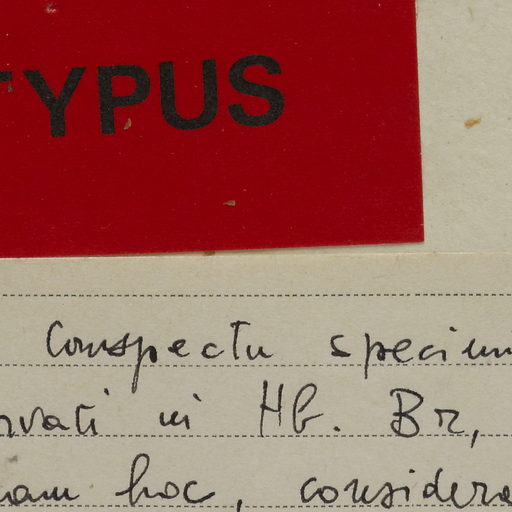 TYPUS
Conspectu specim
rvati in Hb. Br,
nam hoc, considera